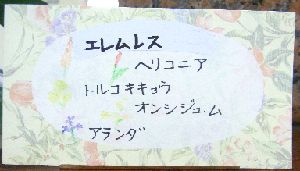 エレムレス
ヘリコニア
トルコキキョウ
オンシジュム
アランダ